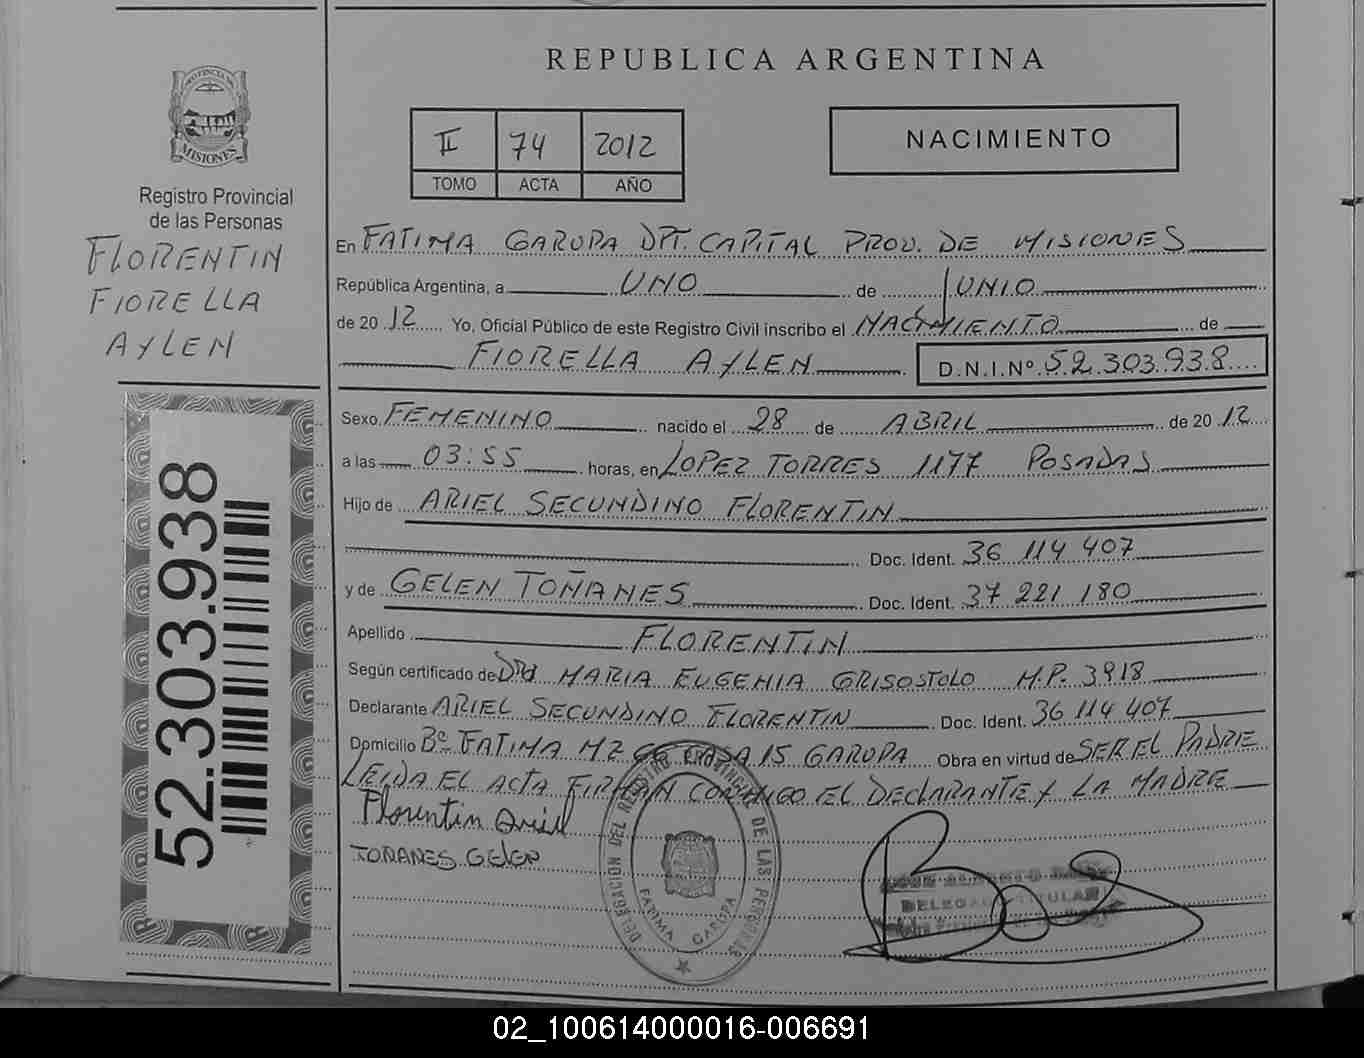 REPUBLICA ARGENTINA
II 74 2012
TOMO ACTA AÑO
NACIMIENTO
MISIONES
Registro Provincial
de las Personas
FLORENTIN
FIORELLA
AYLEN
52.303.938
En FATIMA GARUPA DPT. CAPITAL PROV. DE MISIONES
República Argentina, a UNO de JUNIO
de 2012 Yo, Oficial Público de este Registro Civil inscribo el NACIMIENTO de
FIORELLA AYLEN D.N.I.Nº 52.303.938
Sexo FEMENINO nacido el 28 de ABRIL de 2012
a las 03:55 horas, en LOPEZ TORRES 1177 POSADAS
Hijo de ARIEL SECUNDINO FLORENTIN
Doc. Ident. 36 114 407
y de GELEN TOÑANES Doc. Ident. 37 221 180
Apellido FLORENTIN
Según certificado de Dra MARIA EUGENIA GRISOSTOLO M.P. 3918
Declarante ARIEL SECUNDINO FLORENTIN Doc. Ident. 36 114 407
Domicilio Bº FATIMA MZ CASA 15 GARUPA Obra en virtud de SER EL PADRE
LEIDA EL ACTA FIRMAN CONMIGO EL DECLARANTE Y LA MADRE
Florentin Ariel
TOÑANES GELEN
DELEGACION DEL REGISTRO PROVINCIAL DE LAS PERSONAS
FATIMA GARUPA
JOSE ALBERTO
DELEGADO TITULAR
02_100614000016-006691